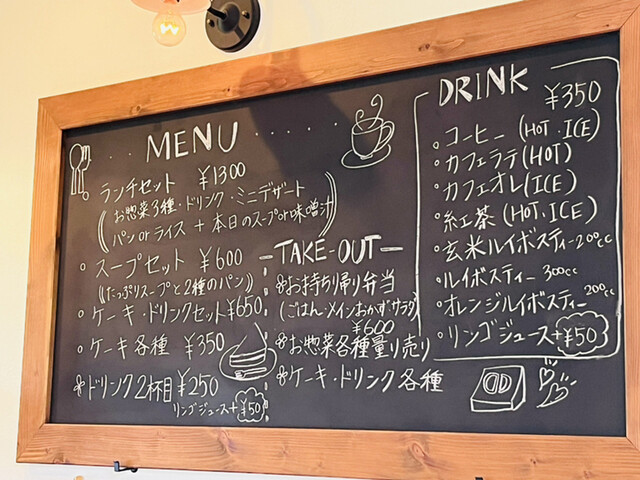 MENU
ランチセット ¥1300
お惣菜3種・ドリンク・ミニデザート
パン or ライス + 本日のスープor味噌汁
スープセット ¥600
たっぷりスープと2種のパン
ケーキ・ドリンクセット ¥650
ケーキ各種 ¥350
ドリンク2杯目 ¥250
リンゴジュース+¥50
TAKE-OUT
お持ち帰り弁当
(ごはん・メインおかず・サラダ)
¥600
お惣菜各種量り売り
ケーキ・ドリンク各種
DRINK ¥350
コーヒー (HOT・ICE)
カフェラテ (HOT)
カフェオレ (ICE)
紅茶 (HOT・ICE)
玄米ルイボスティー200cc
ルイボスティー 300cc
オレンジルイボスティー200cc
リンゴジュース+¥50